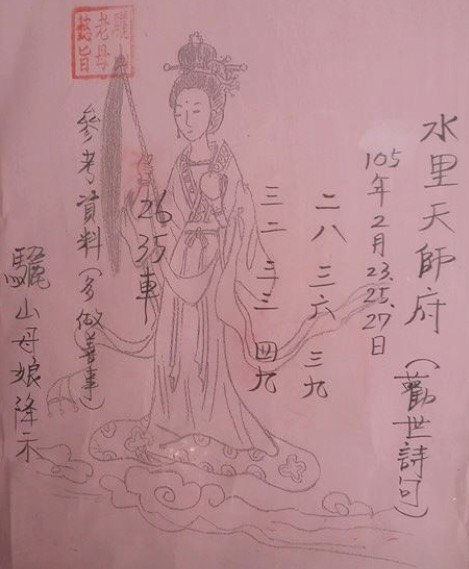 水里天師府(勸世詩句)
105年2月23.25.27日
二八 三六 三九
三二 三三 四九
26 35 車
參考資料(多做善事)
驪山母娘降示
驪山
老母
懿旨